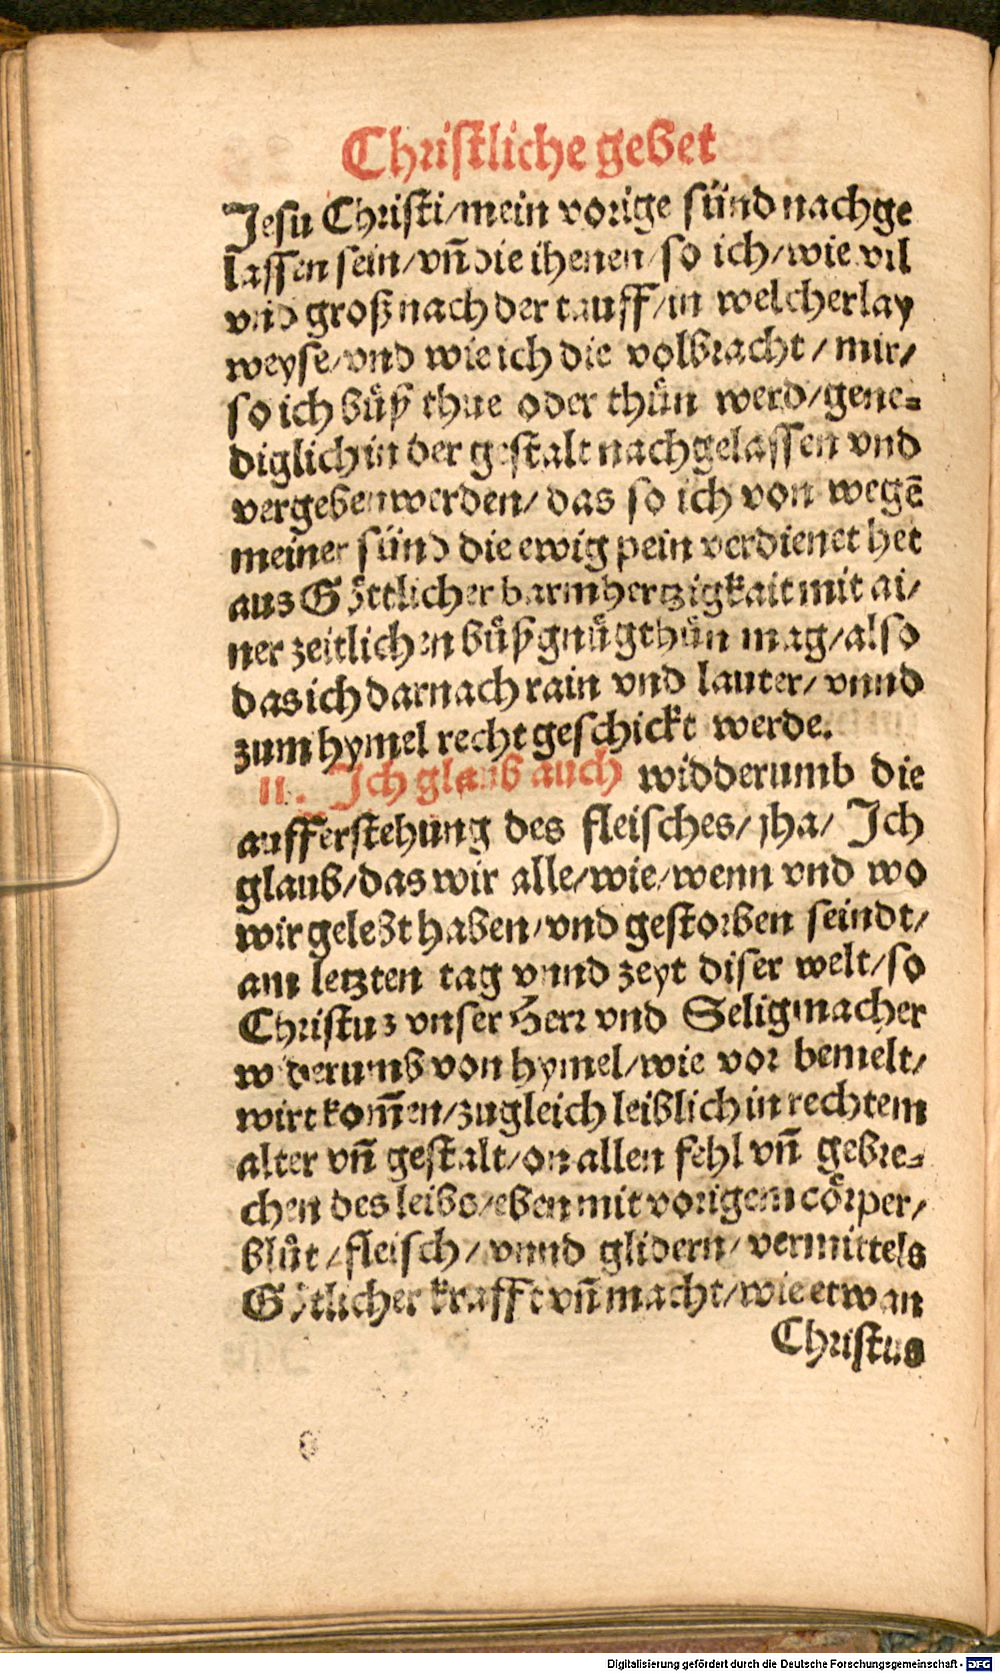 Christliche gebet
Jesu Christi/mein vorige sünd nachge
lassen sein/vñ die ihenen/so ich/wie vil
vnd groß nach der tauff/in welcherlay
weyse/vnd wie ich die volbracht/mir/
so ich bůß thue oder thůn werd/gene⸗
diglich in der gestalt nachgelassen vnd
vergeben werden/das so ich von wegẽ
meiner sünd die ewig pein verdienet het
aus Göttlicher barmhertzigkait mit ai/
ner zeitlichen bůß gnůgthůn mag/also
das ich darnach rain vnd lauter/vnnd
zum hymel recht geschickt werde.
11. Ich glaub auch widderumb die
aufferstehung des fleisches/jha/Ich
glaub/das wir alle/wie/wenn vnd wo
wir gelebt haben/vnd gestorben seindt/
am letzten tag vnnd zeyt diser welt/so
Christus vnser Herr vnd Seligmacher
widerumb von hymel/wie vor bemelt/
wirt kom̃en/zugleich leiblich in rechtem
alter vñ gestalt/on allen fehl vñ gebre⸗
chen des leibs/eben mit vorigem cörper/
blůt/fleisch/vnnd glidern/vermittels
Götlicher krafft vñ macht/wie etwan
Christus
Digitalisierung gefördert durch die Deutsche Forschungsgemeinschaft - DFG